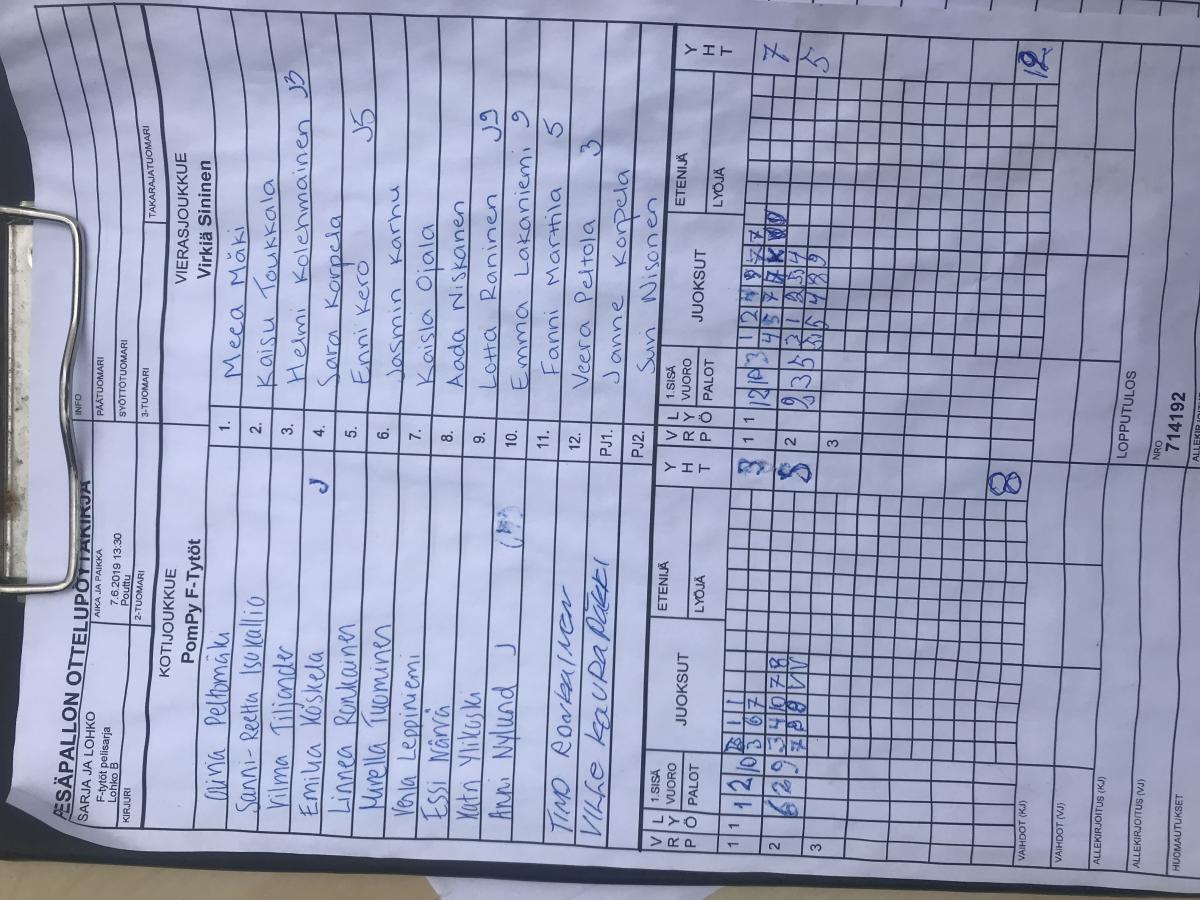 PESÄPALLON OTTELUPÖYTÄKIRJA
SARJA JA LOHKO
F-tytöt pelisarja
Lohko B
KIRJURI
AIKA JA PAIKKA
7.6.2019 13:30
Pouttu
2-TUOMARI
INFO
PÄÄTUOMARI
SYÖTTÖTUOMARI
3-TUOMARI
TAKARAJATUOMARI
KOTIJOUKKUE
PomPy F-Tytöt
VIERASJOUKKUE
Virkiä Sininen
Oliwia Peltomäki
Sanni-Reetta Isokallio
Vilma Tiliander
Emilia Koskela J
Linnea Ronkainen
Minella Tuominen
Venla Leppiniemi
Essi Närvä
Katri Ylikoski
Anni Nylund J
TIMO RONKAINEN
VILLE KAURAPÄKKI
1. Meea Mäki
2. Kaisu Toukkala
3. Helmi Kolehmainen J3
4. Sara Korpela
5. Enni Kero J5
6. Jasmin Karhu
7. Kaisla Ojala
8. Aada Niskanen
9. Lotta Raninen J9
10. Emma Lakaniemi 9
11. Fanni Marttila 5
12. Veera Peltola 3
PJ1. Janne Korpela
PJ2. Suvi Nisonen
VRP LYÖ 1.SISÄ VUORO PALOT JUOKSUT ETENIJÄ LYÖJÄ YHT
VRP LYÖ 1.SISÄ VUORO PALOT JUOKSUT ETENIJÄ LYÖJÄ YHT
1 1 12 10 3
3 6 7
2 6 2 9 3 4 10 7 8 5
3
8
1 1 12 10 3 1 2 4 9 7 7 7
2 9 3 5 3 1 2 5 4 5
5 4 8 9
3
12
VAIHDOT (KJ)
VAIHDOT (VJ)
LOPPUTULOS
ALLEKIRJOITUS (KJ)
ALLEKIRJOITUS (VJ)
NRO
714192
HUOMAUTUKSET